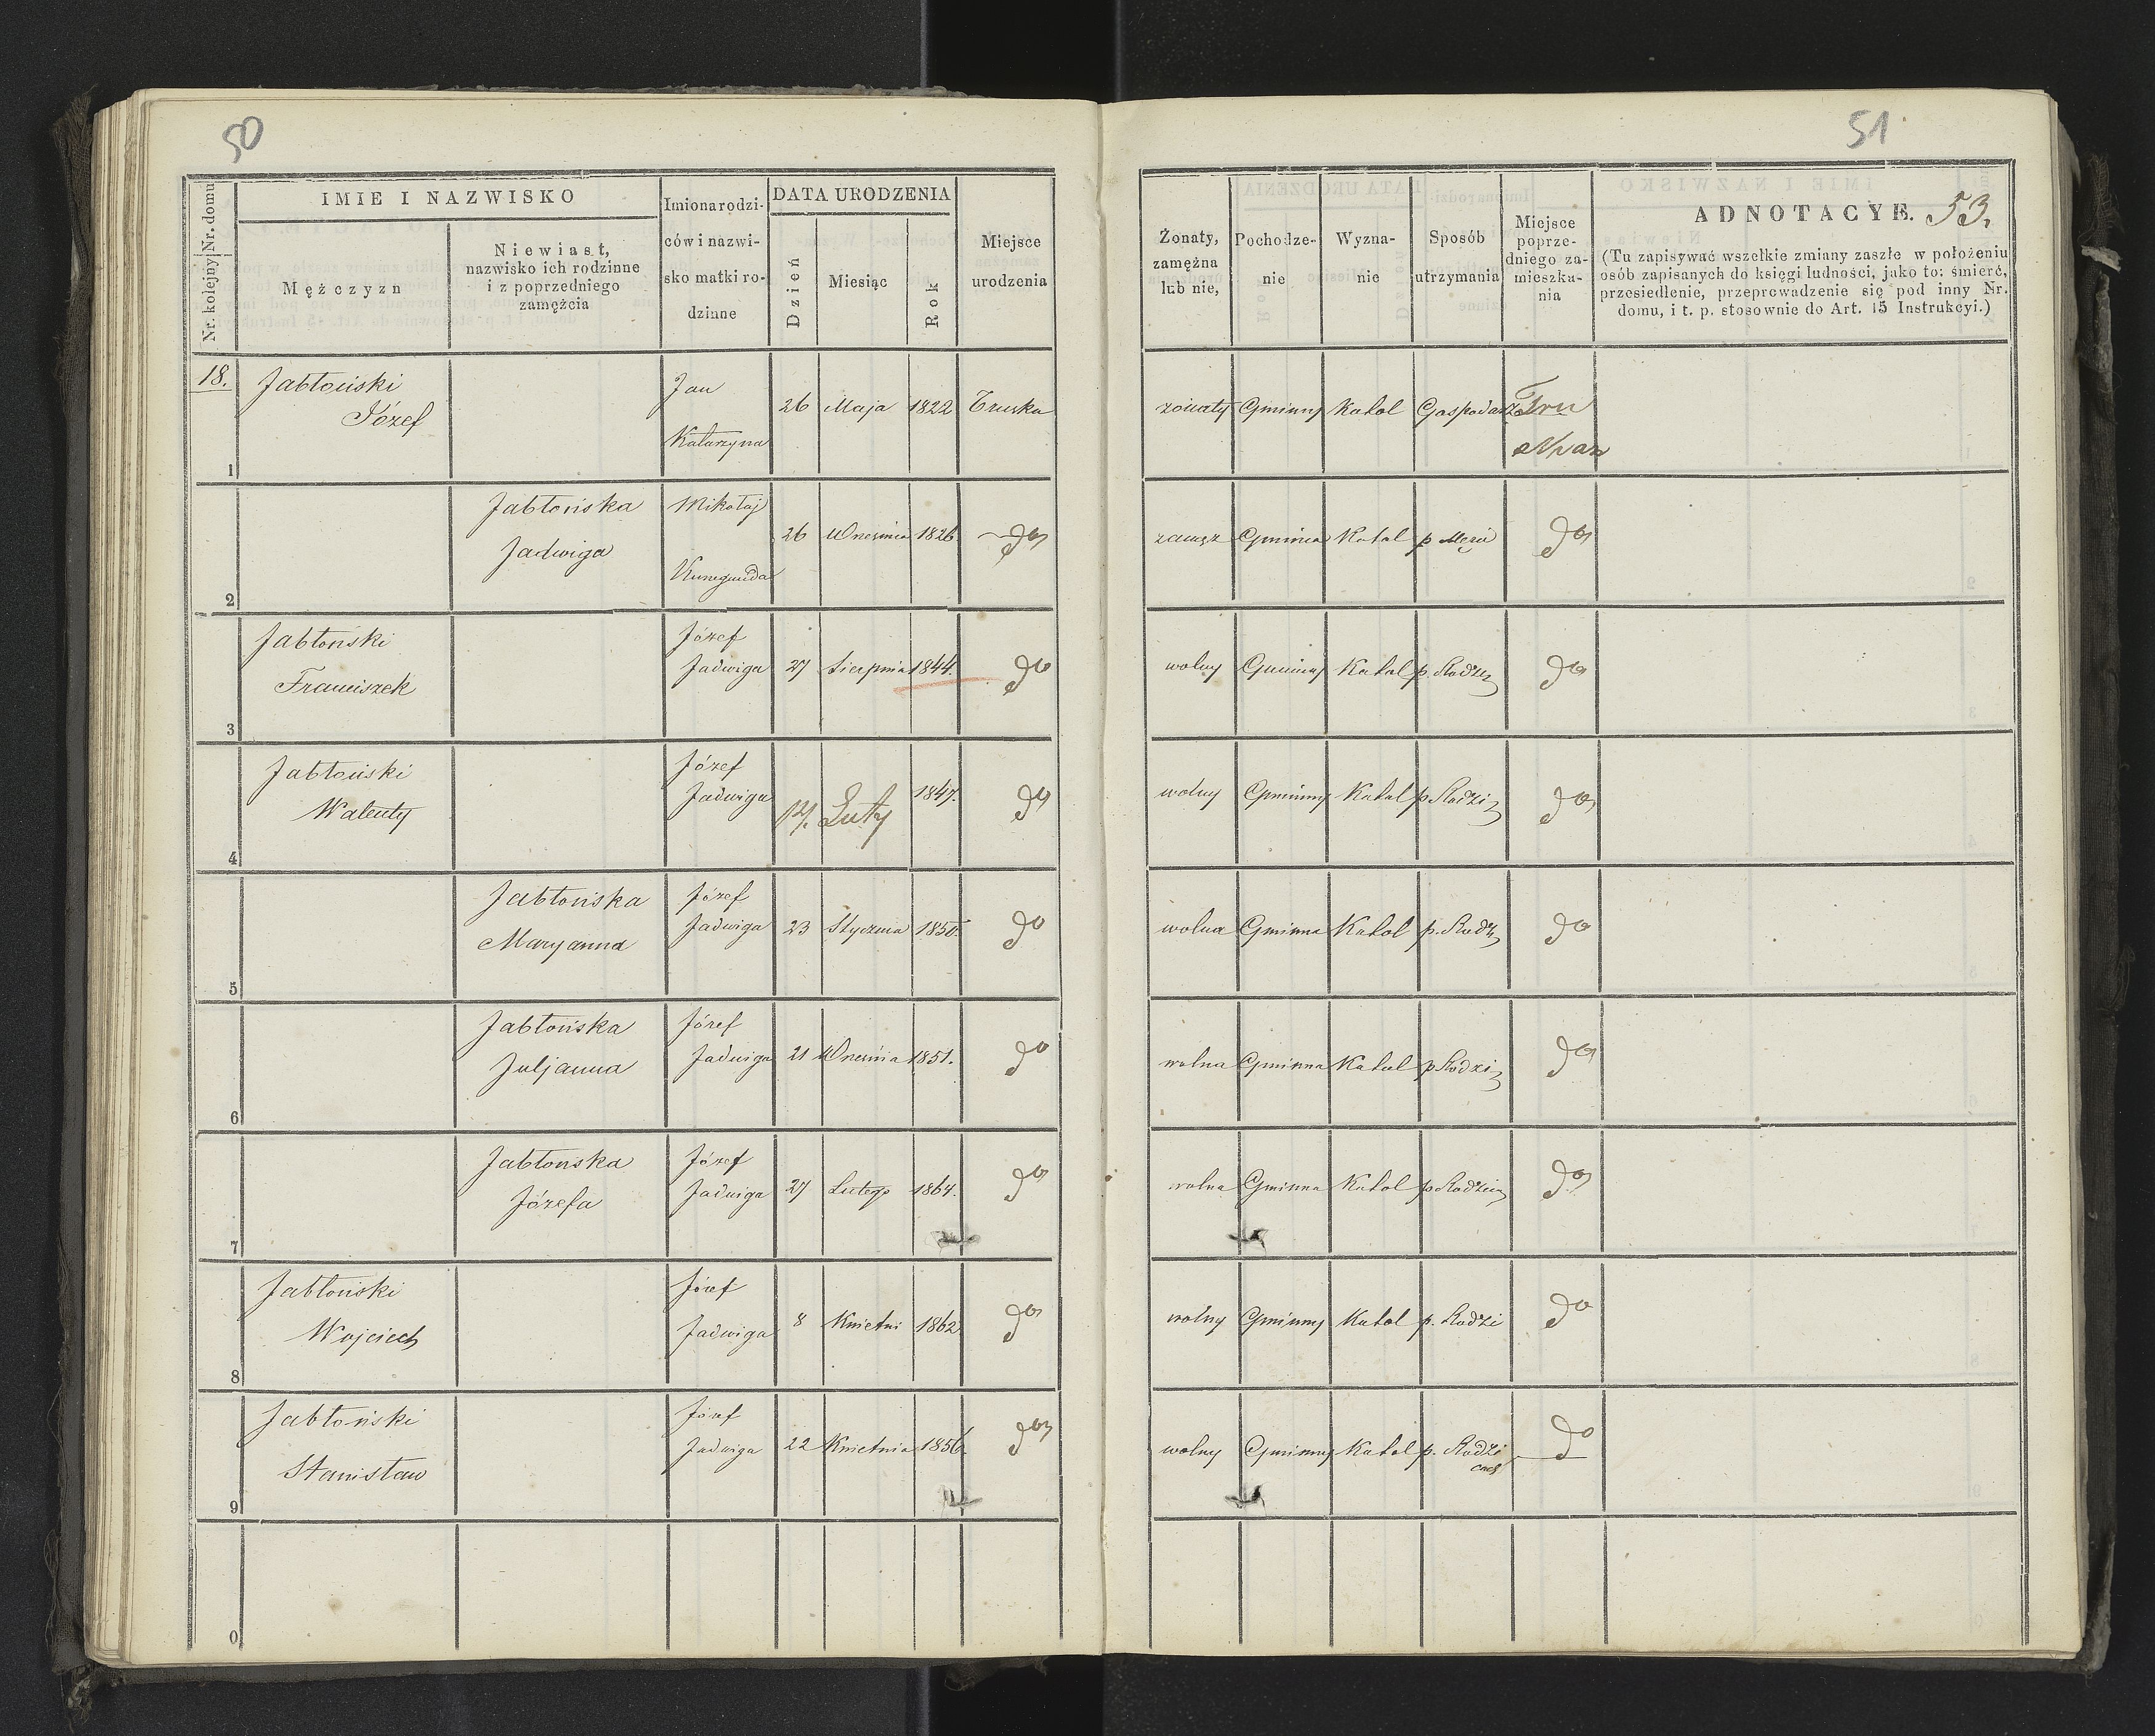 50
Nr. kolejny Nr. domu
IMIE I NAZWISKO
Mężczyzn
Niewiast,
nazwisko ich rodzinne
i z poprzedniego
zamężcia
Imiona rodzi-
ców i nazwi-
sko matki ro-
dzinne
DATA URODZENIA
Dzień
Miesiąc
Rok
Miejsce
urodzenia
18.
Jabłoński
Józef
Jan
Katarzyna
26 Maja 1822
1
Jabłońska
Jadwiga
Mikołaj
Kunegunda
26 Wrzesnia 1826 do
2
Jabłoński
Franciszek
Józef
Jadwiga 27 Sierpnia 1844. do
3
Jabłoński
Walenty
Józef
Jadwiga
Luty 1847. do
4
Jabłońska
Maryanna
Józef
Jadwiga 23 Stycznia 1850. do
5
Jabłońska
Juljanna
Józef
Jadwiga 21 Września 1851. do
6
Jabłońska
Józefa
Józef
Jadwiga 27 Lutego 1864. do
7
Jabłoński
Wojciech
Józef
Jadwiga 8 Kwietni 1862 do
8
Jabłoński
Stanisław
Józef
Jadwiga 22 Kwietnia 1856. do
9
0
51
Żonaty,
zamężna
lub nie,
Pochodze-
nie
Wyzna-
nie
Sposób
utrzymania
Miejsce
poprze-
dniego za-
mieszka-
nia
ADNOTACYE. 53.
(Tu zapisywać wszelkie zmiany zaszłe w położeniu
osób zapisanych do księgi ludności, jako to: śmierć,
przesiedlenie, przeprowadzenie się pod inny Nr.
domu, i t. p. stosownie do Art. 15 Instrukcyi.)
żonaty Gminny Katol Gospodarz
zamęz Gminna Katol p Męzu do
wolny Gminny Katol p. Rodzi do
wolny Gminny Katol p Rodzi do
wolna Gminna Katol p. Rodz do
wolna Gminna Katol p Rodzi do
wolna Gminna Katol p Rodzi do
wolny Gminny Katol p. Rodzi do
wolny Gminny Katol p. Rodzi do
cach